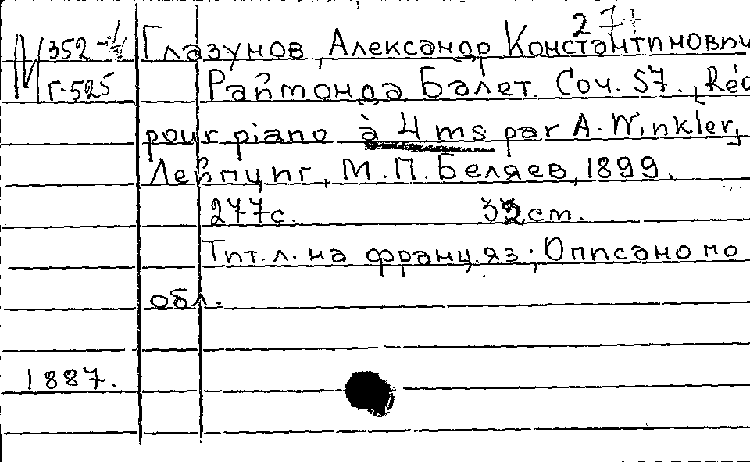 27
М 352-4/ Глазунов, Александр Константинович
Г-525 Раймонда Балет. Соч. 57., Réd
pour piano à 4 ms par A. Winkler,
Лейпциг, М.П. Беляев, 1899.
277с. 32см.
Тит.л. на франц.яз; Описано по
обл.
1887.